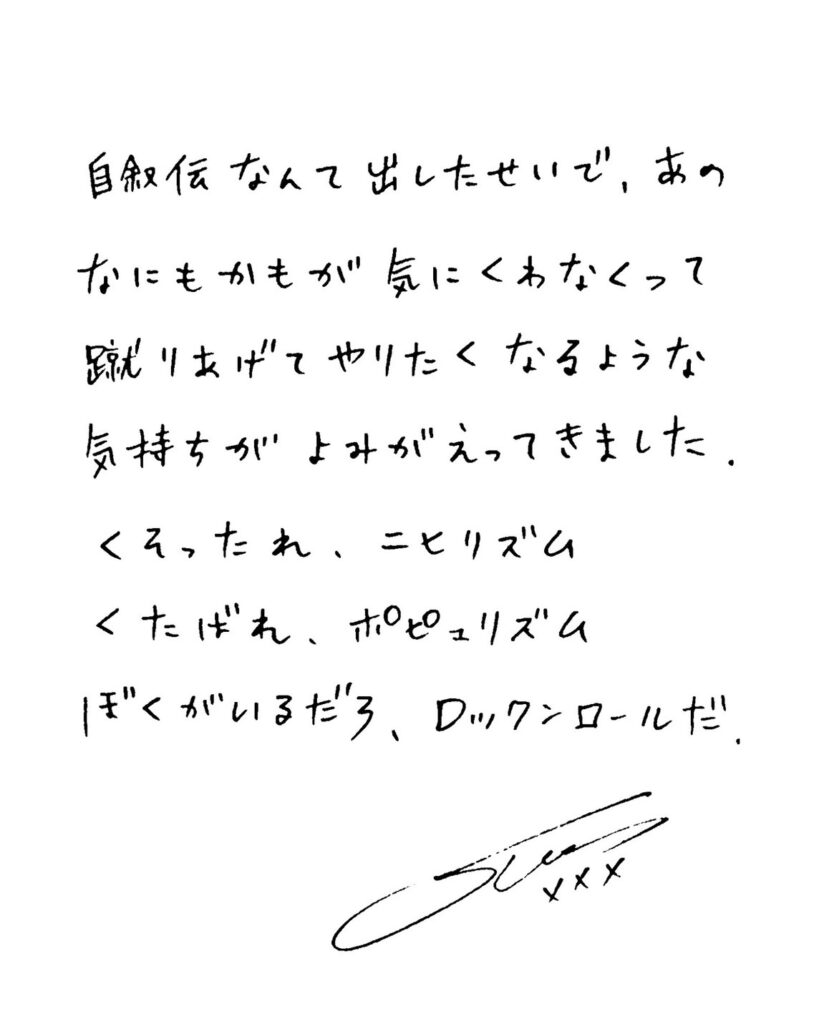 自叙伝なんて出したせいで、あの
なにもかもが気にくわなくって
蹴りあげてやりたくなるような
気持ちがよみがえってきました.
くそったれ、ニヒリズム
くたばれ、ポピュリズム
ぼくがいるだろ、ロックンロールだ.
xxx